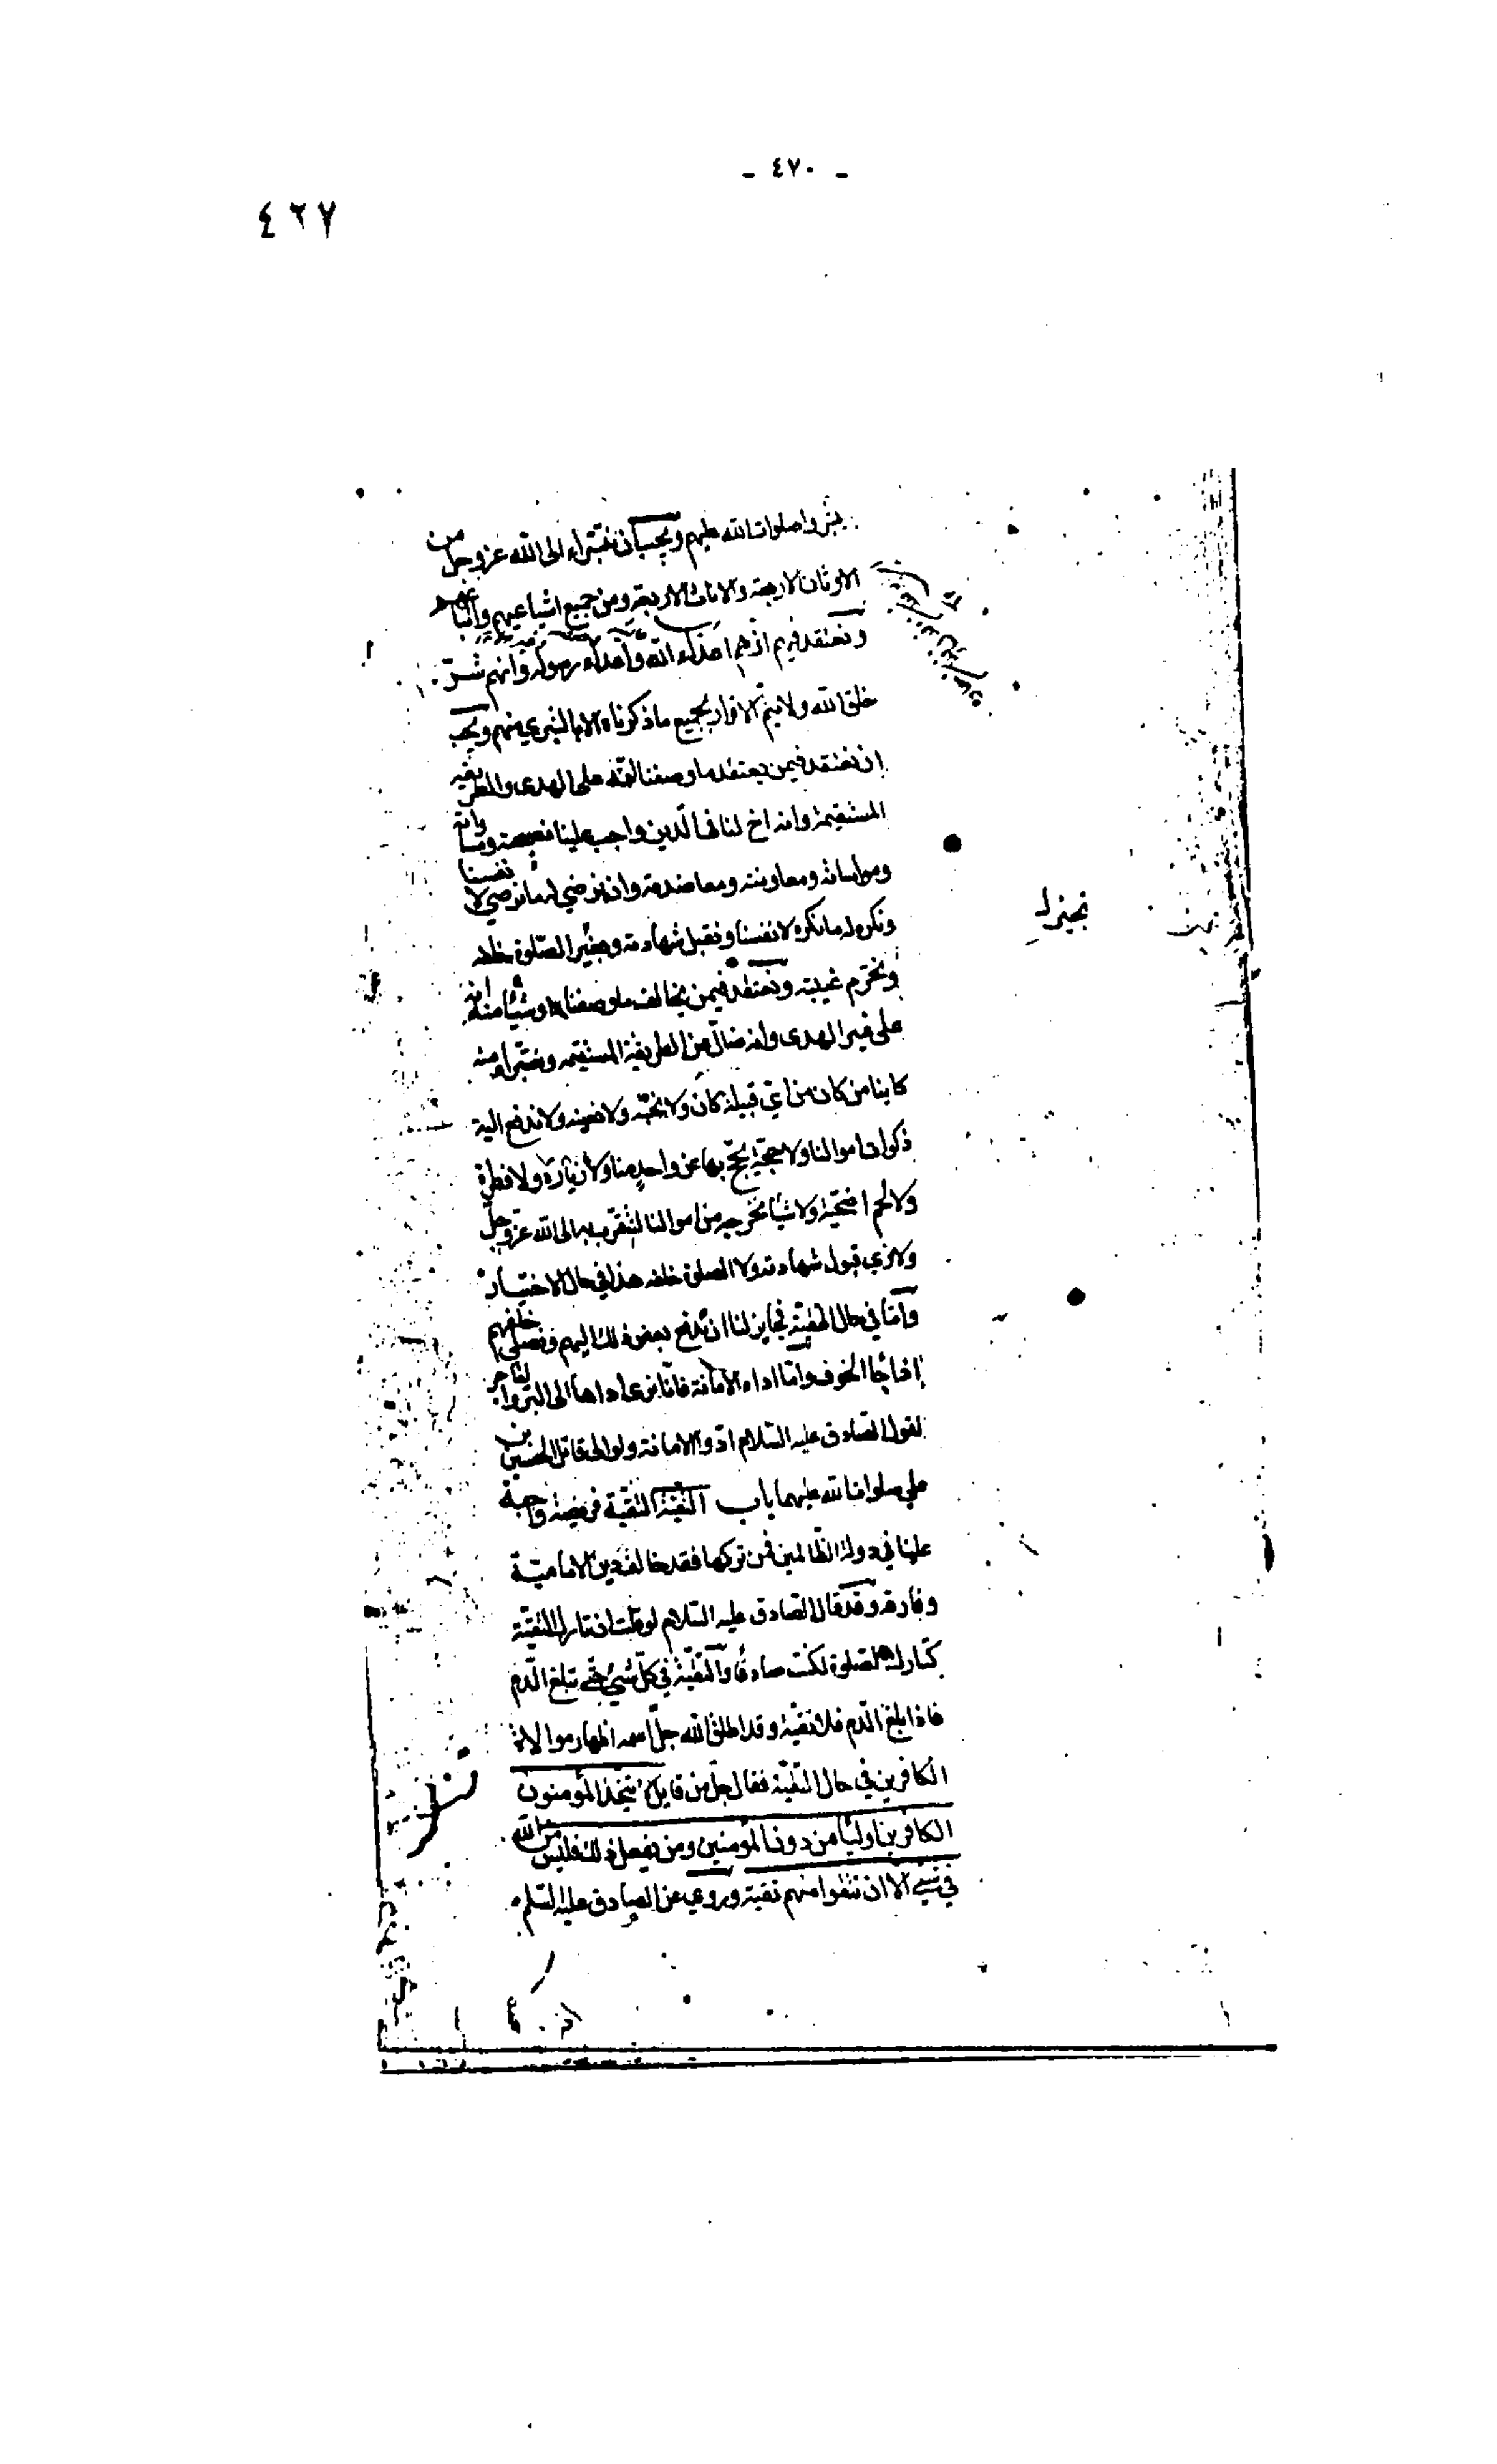 - ٤٧٠ -
٤٦٧
صلوات الله عليهم ويجب ان نتبراء الى الله عز وجل من
الاوثان الاربعة والاناث الاربعة ومن جميع اشياعهم واتباعهم
ونعتقد فيهم انهم اعداء الله واعداء رسوله وانهم شر
خلق الله ولا يتم الاقرار بجميع ما ذكرناه الا بالتبري منهم ويجب
ان نعتقد فيمن يعتقد ما وصفنا انه على الهدى والطريقة
المستقيمة وانه اخ لنا في الدين واجب علينا نصيحته
ومواساته ومعاونته ومعاضدته وان نرضي له ما نرضي لانفسنا
ونكره له ما نكره لانفسنا ونقبل شهادته ونجيز الصلوة خلفه
ونحرم غيبته ونعتقد فيمن يخالف ما وصفناه او شيئا منه انه
على غير الهدى وانه ضال عن الطريقة المستقيمة ونتبراء منه
كاينا من كان من اي قبيلة كان ولا نحبه ولا نعينه ولا ندفع اليه
زكوات اموالنا ولا حجة يحج بها عن واحد منا ولا زيارة ولا فطرة
ولا لحم اضحية ولا شيئا نخرجه من اموالنا لنتقرب به الى الله عز وجل
ولا نري قبول شهادته ولا الصلوة خلفه هذا في حال الاختيار
وأما في حال التقية فجايز لنا ان ندفع بعض ذلك اليهم ونصلي خلفهم
اذا جا الخوف واما اداء الامانة فانا نرى اداها الى البر والفاجر
لقول الصادق عليه السلام ادوا الامانة ولو الى قاتل الحسين بن
علي صلوات الله عليهما باب التقية التقية فريضة واجبة
علينا في دولة الظالمين فمن تركها فقد خالف دين الامامية
وفارقه وقد قال الصادق عليه السلام لو قلت ان تارك التقية
كتارك الصلوة لكنت صادقا والتقية في كل شيء حتى تبلغ الدم
فاذا بلغ الدم فلا تقية وقد اطلق الله جل اسمه اظهار موالاة
الكافرين في حال التقية فقال جل من قايل لا يتخذ المؤمنون
الكافرين اوليا من دون المؤمنين ومن يفعل ذلك فليس من الله
في شيء الا ان تتقوا منهم تقية وروي عن الصادق عليه السلم